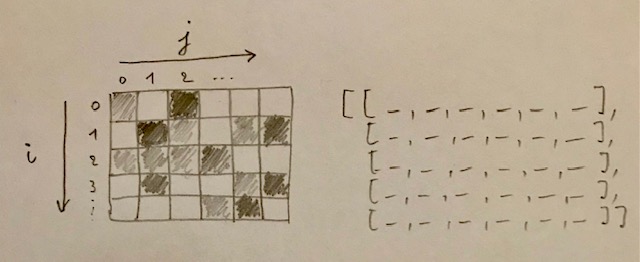 j
0 1 2 ...
i
0
1
2
3
⋮
[[_,_,_,_,_,_],
[_,_,_,_,_,_],
[_,_,_,_,_,_],
[_,_,_,_,_,_],
[_,_,_,_,_,_]]